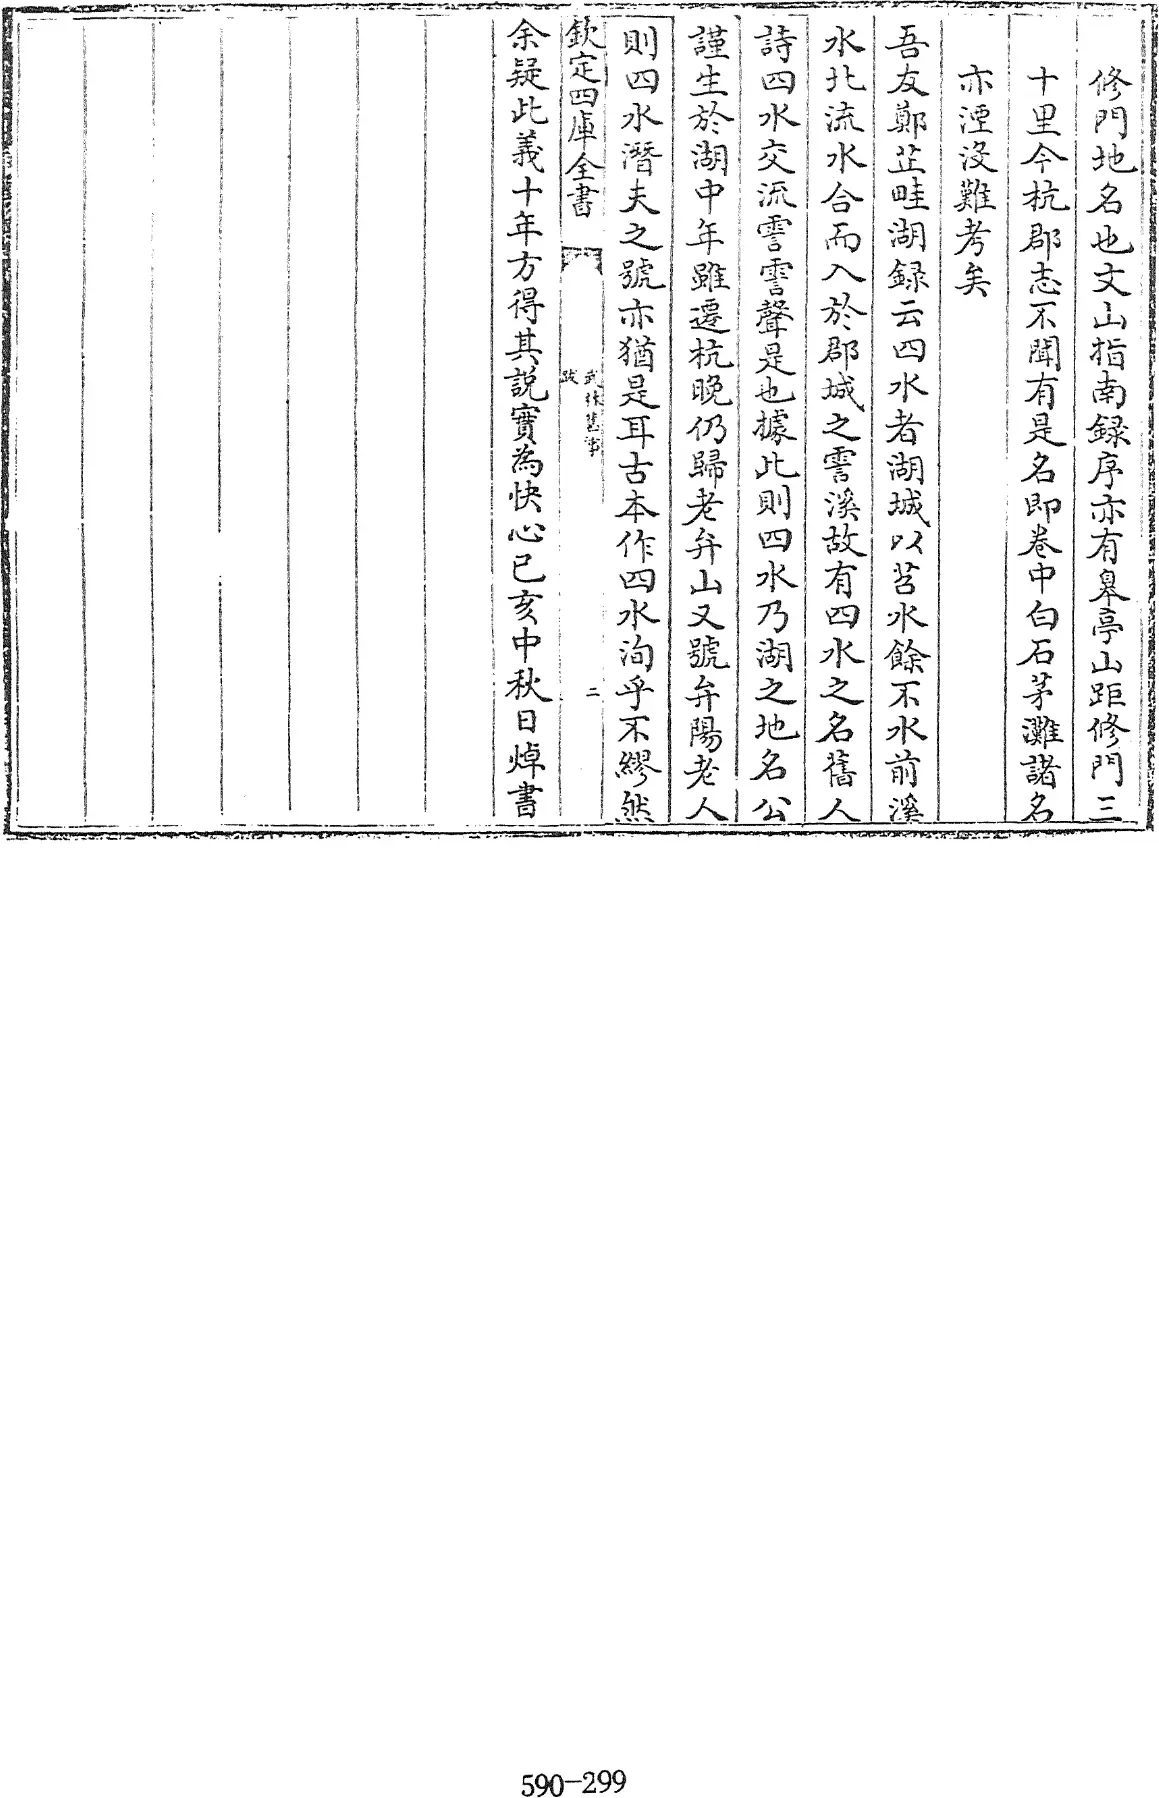 修門地名也文山指南録序亦有臯亭山距修門三
十里今杭郡志不聞有是名即巻中白石茅灘諸名
亦湮沒難考矣
吾友鄭芷畦湖録云四水者湖城以苕水餘不水前溪
水北流水合而入於郡城之霅溪故有四水之名舊人
詩四水交流霅霅聲是也據此則四水乃湖之地名公
謹生於湖中年雖遷杭晚仍歸老弁山又號弁陽老人
則四水潛夫之號亦猶是耳古本作四水洵乎不繆然
欽定四庫全書
武林舊事
跋
二
余疑此義十年方得其説實為快心已亥中秋日焯書
590-299